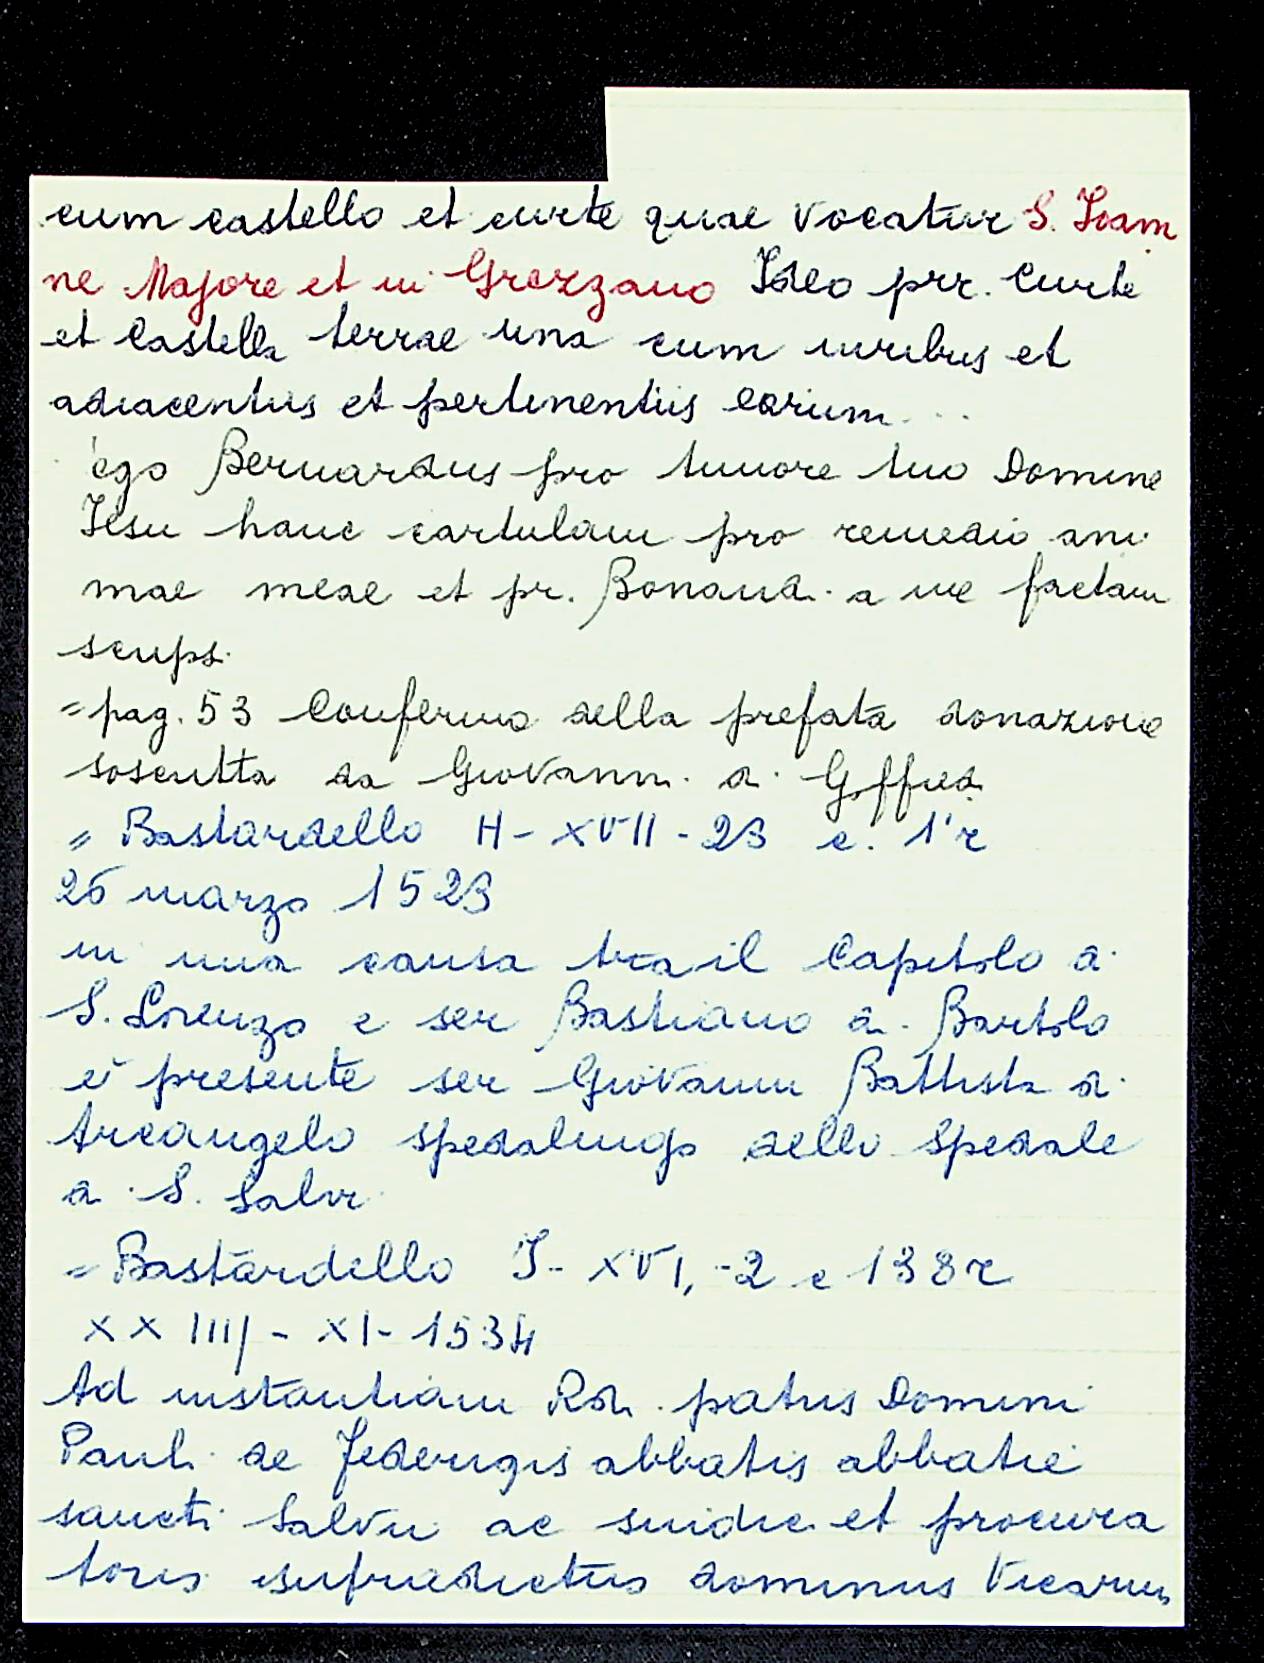 cum castello et curte quae vocatur S. Joam
ne Majore et in Grezzano Ideo prr. Curte
et Castella terrae una cum iuribus et
adiacentiis et pertinentiis earum...
ego Bernardus pro timore tuo Domine
Jesu hanc cartulam pro remedio ani
mae meae et pr. Bonand. a me factam
scrips.
= pag. 53 Conferma della prefata donazione
soscritta da Giovanni di Giffred.
= Bastardello H - XVII - 23 c. 1'r
26 marzo 1523
in una causa tra il Capitolo di
S. Lorenzo e ser Bastiano di Bartolo
è presente ser Giovanni Battista di
Arcangelo spedalingo dello spedale
di S. Salvi
= Bastardello I - XVI, - 2 c 138r
XXIIIJ - XI - 1534
Ad instantiam Rdi. patris Domini
Pauli de Federigis abbatis abbatie
sancti Salvii ac sindic et procura
toris dominus Vicarius